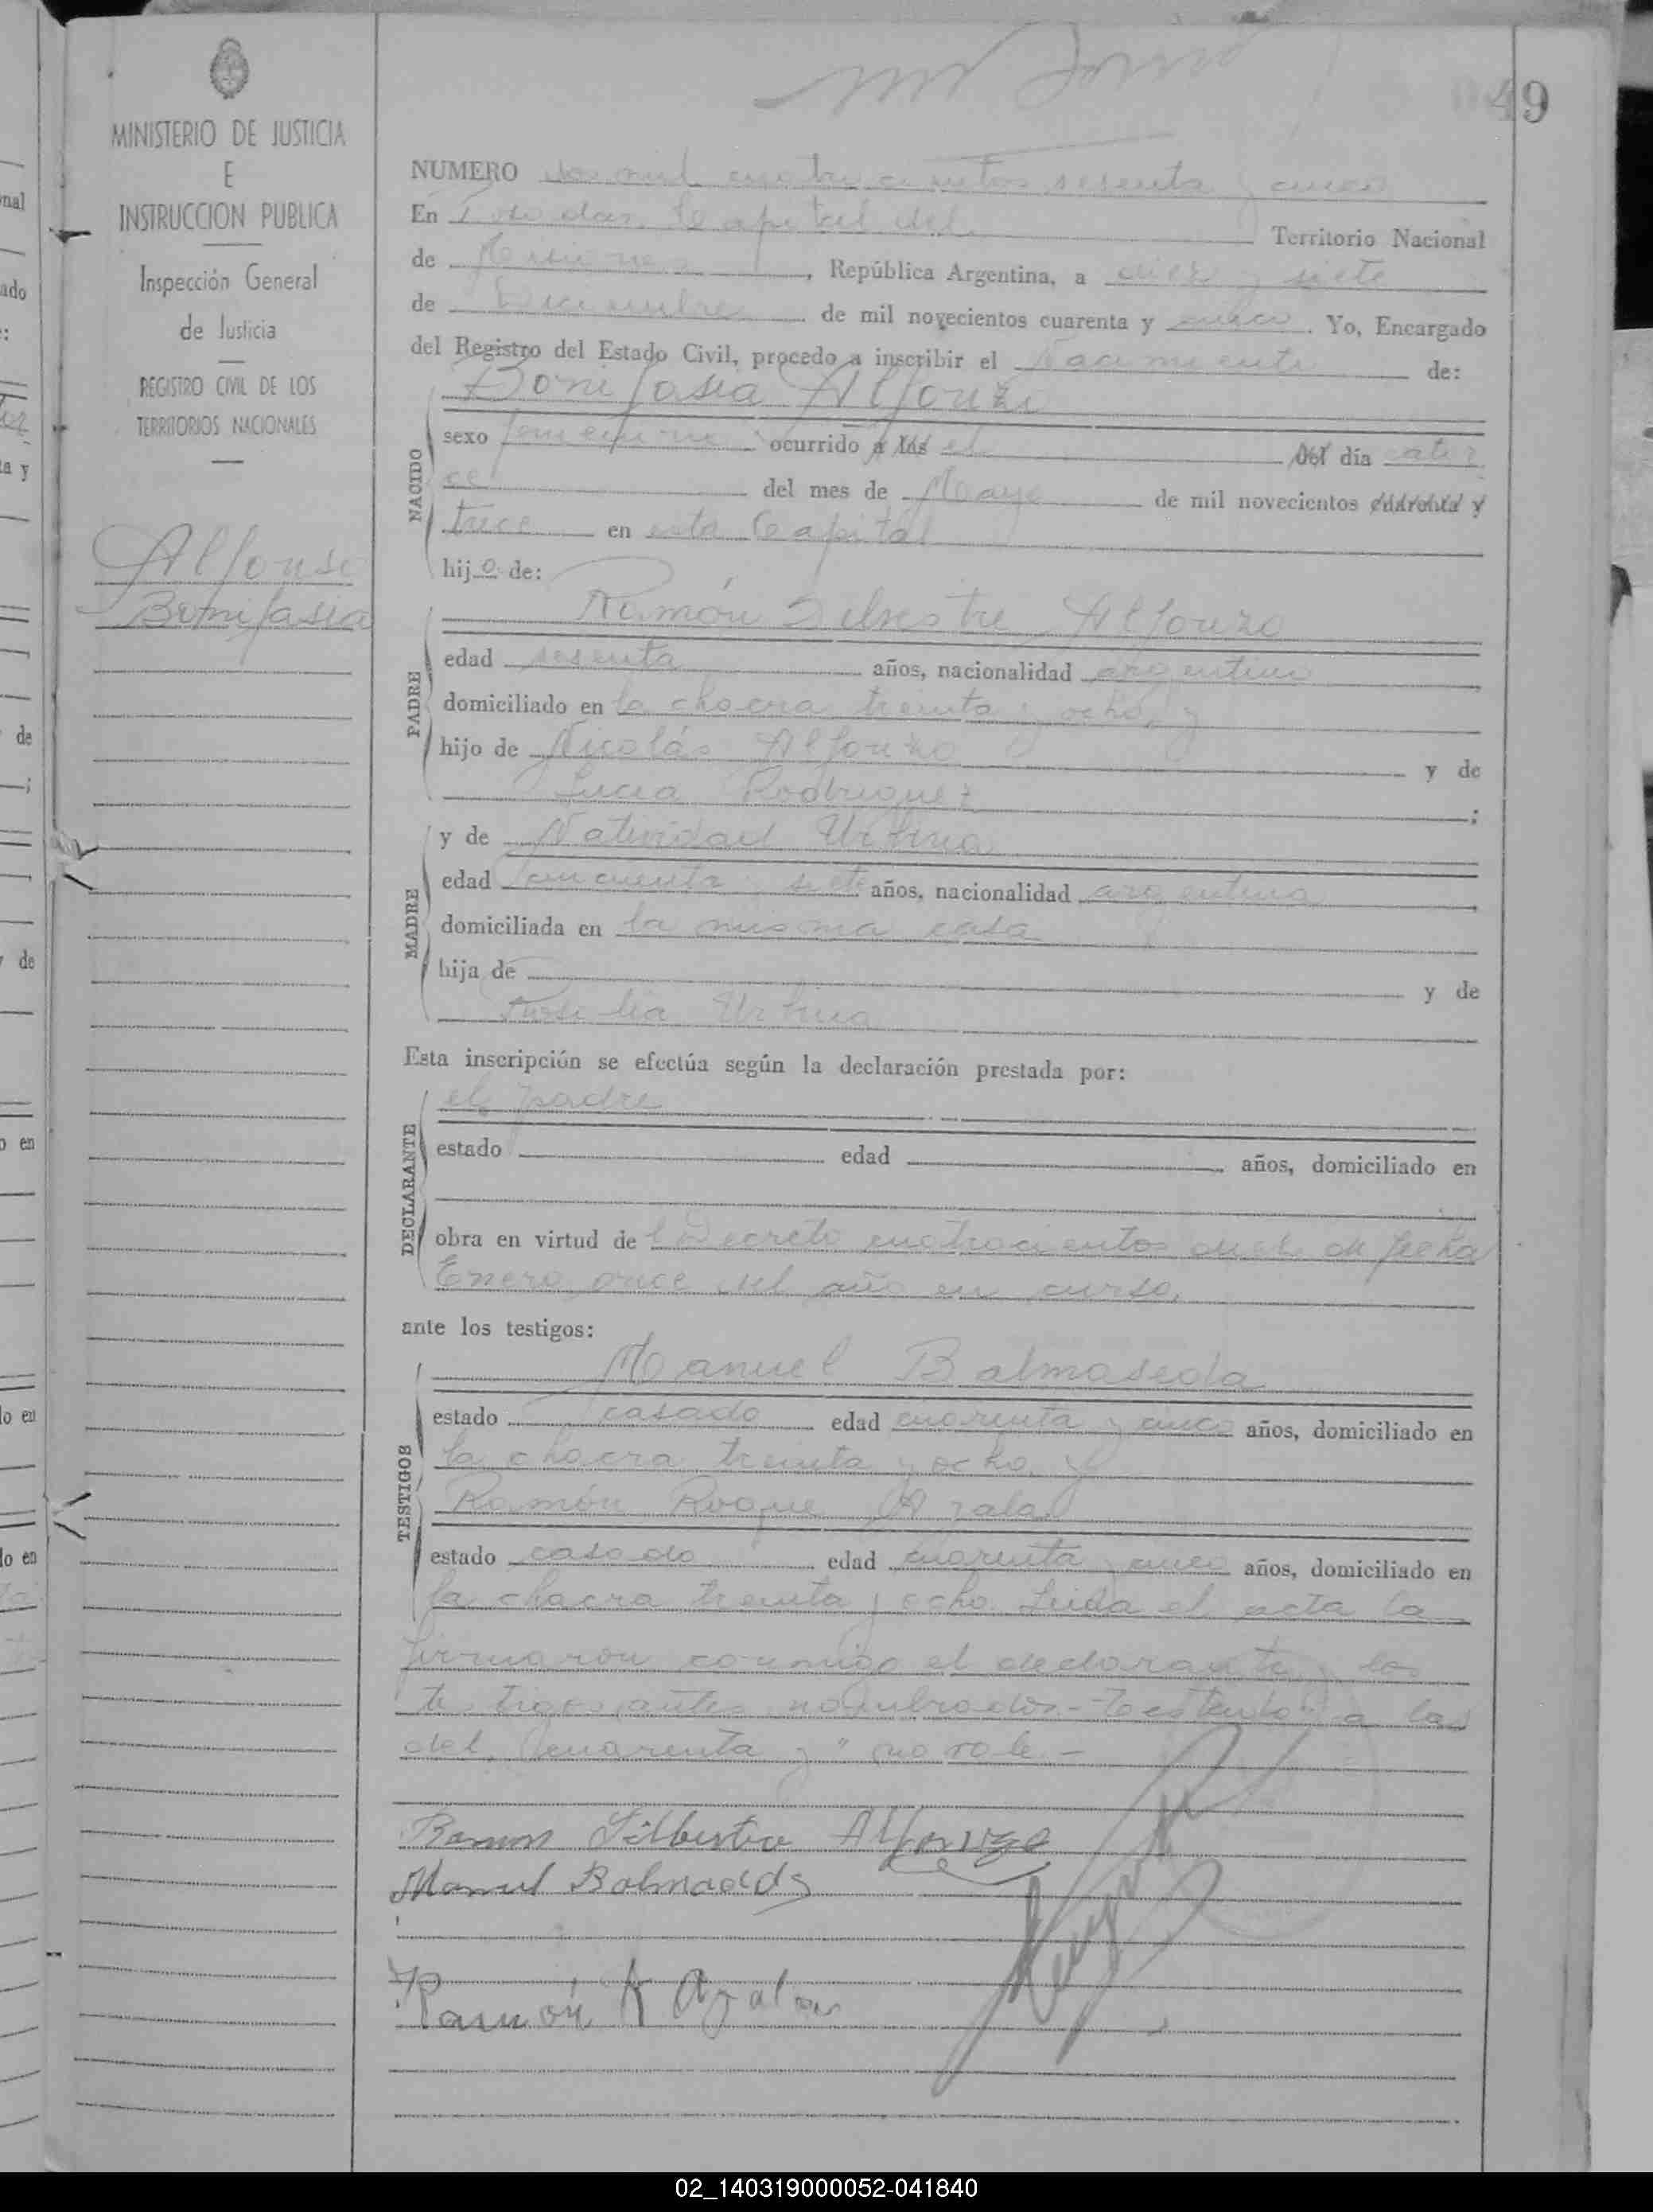 49
MINISTERIO DE JUSTICIA
E
INSTRUCCION PUBLICA
Inspección General
de Justicia
REGISTRO CIVIL DE LOS
TERRITORIOS NACIONALES
Alfonso
Bonifasia
NUMERO dos mil cuatrocientos sesenta y cinco
En Posadas, Capital del Territorio Nacional
de Misiones, República Argentina, a diez y siete
de Diciembre de mil novecientos cuarenta y cinco. Yo, Encargado
del Registro del Estado Civil, procedo a inscribir el Nacimiento de:
Bonifasia Alfonzo
NACIDO
sexo femenino ocurrido a las el del día cator
ce del mes de Mayo de mil novecientos cuarenta y
trece en esta Capital
hijo de:
Ramón Silvestre Alfonzo
PADRE
edad sesenta años, nacionalidad argentino
domiciliado en la chacra treinta y ocho, y
hijo de Nicolás Alfonzo y de
Lucia Rodriguez ;
MADRE
y de Natividad Urbina
edad cincuenta y siete años, nacionalidad argentina
domiciliada en la misma casa
hija de y de
Urbina
Esta inscripción se efectúa según la declaración prestada por:
DECLARANTE
el padre
estado edad años, domiciliado en
obra en virtud del Decreto cuatrocientos de fecha
Enero once del año en curso,
ante los testigos:
TESTIGOS
Manuel Balmaseda
estado casado edad cuarenta y cinco años, domiciliado en
la chacra treinta y ocho, y
Ramón Roque Ayala
estado casado edad cuarenta y cinco años, domiciliado en
la chacra treinta y ocho. Leída el acta la
firmaron conmigo el declarante y los
testigos antes nombrados.- Testado: "a las
del, cuarenta y" no vale.-
Ramon Silbestre Alfonzo
Manuel Balmaseda
Ramón R Ayala
02_140319000052-041840